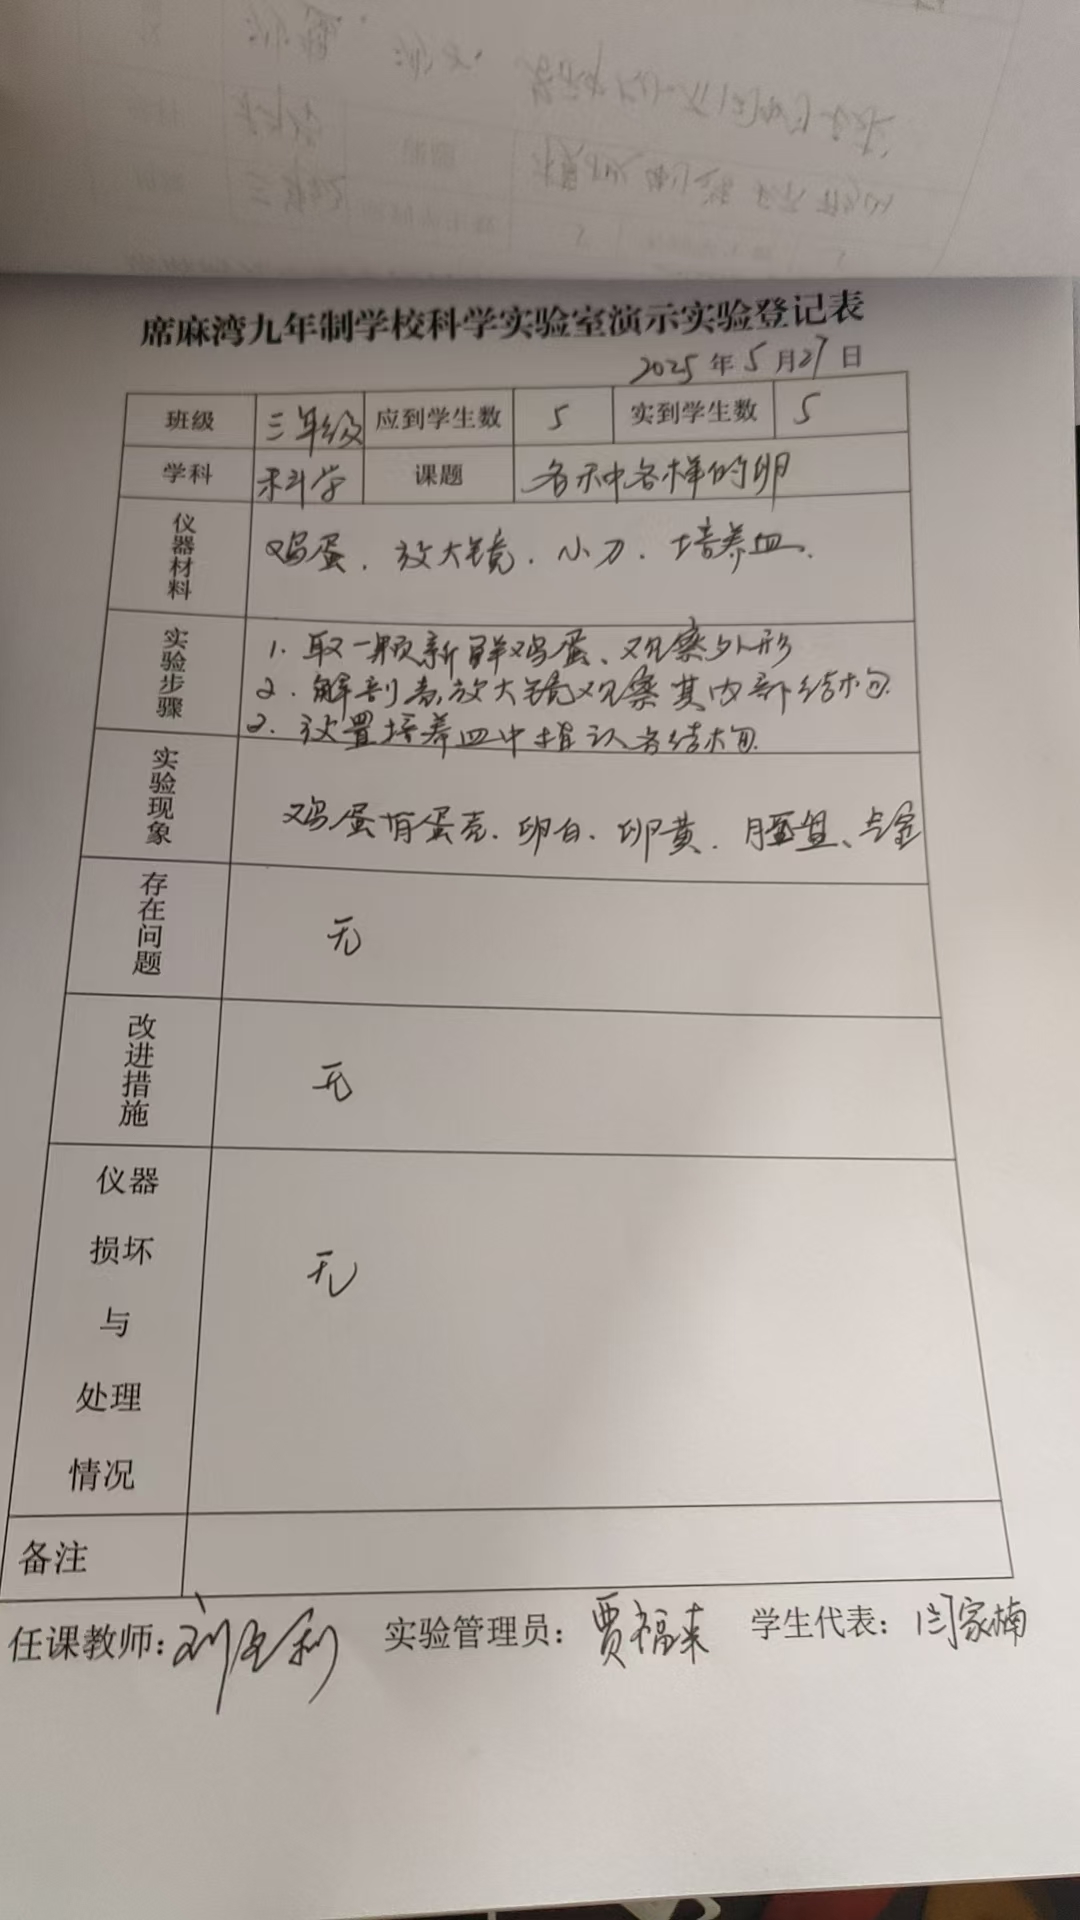 席麻湾九年制学校科学实验室演示实验登记表
2025年5月27日
班级 三年级 应到学生数 5 实到学生数 5
学科 科学 课题 各种各样的卵
仪器材料 鸡蛋、放大镜、小刀、培养皿.
实验步骤 1. 取一颗新鲜鸡蛋、观察外形
2. 解剖 放大镜观察其内部结构
2. 放置培养皿中指认各结构
实验现象 鸡蛋有蛋壳、卵白、卵黄、胚盘、气室
存在问题 无
改进措施 无
仪器损坏与处理情况 无
备注
任课教师: 刘 利 实验管理员: 贾福来 学生代表: 闫家楠